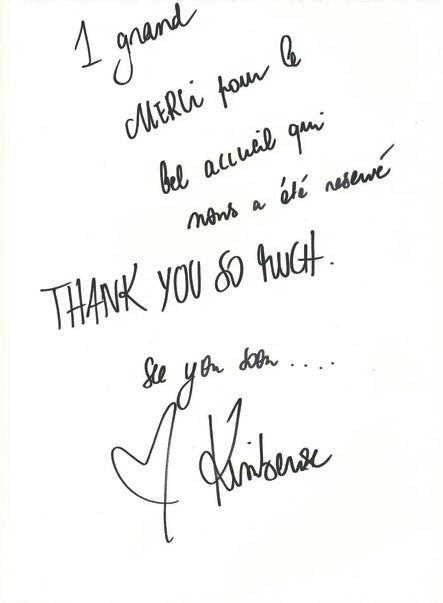 1 grand
MERCi pour le
bel accueil qui
nous a été reservé
THANK YOU SO MUCH.
See you soon....
Kimberose